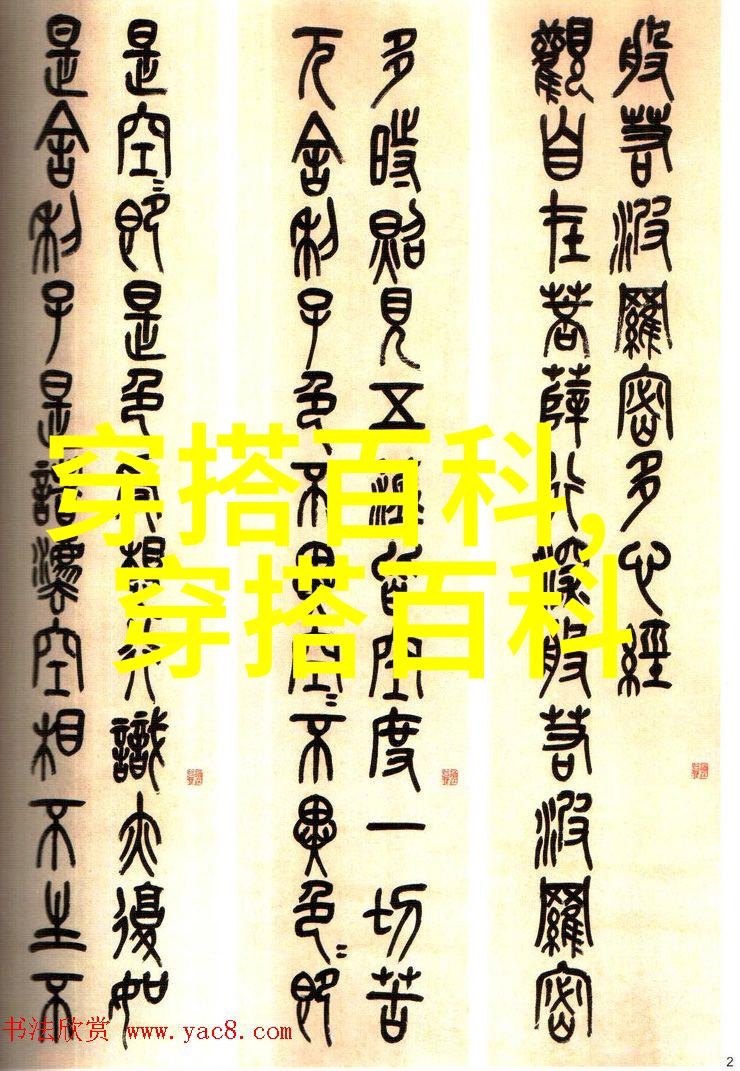 般若波羅密多心經
觀自在菩薩行深般若波羅密
多時照見五蘊皆空度一切苦
厄舍利子色不異空〻不異色〻即
是空〻即是色受想行識亦復如
是舍利子是諸法空相不生不
穿搭百科,
穿搭百科
书法欣赏 www.yac8.com
2